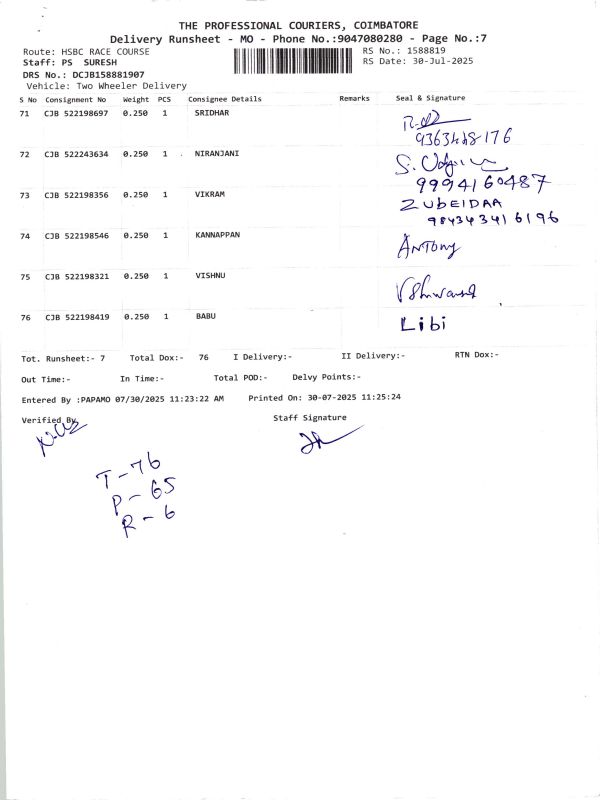 THE PROFESSIONAL COURIERS, COIMBATORE
Delivery Runsheet - MO - Phone No.:9047080280 - Page No.:7
Route: HSBC RACE COURSE RS No.: 1588819
Staff: PS SURESH RS Date: 30-Jul-2025
DRS No.: DCJB158881907
Vehicle: Two Wheeler Delivery
S No Consignment No Weight PCS Consignee Details Remarks Seal & Signature
71 CJB 522198697 0.250 1 SRIDHAR
72 CJB 522243634 0.250 1 NIRANJANI
9994160487
73 CJB 522198356 0.250 1 VIKRAM ZUBEIDAA
74 CJB 522198546 0.250 1 KANNAPPAN ANTONY
75 CJB 522198321 0.250 1 VISHNU
76 CJB 522198419 0.250 1 BABU Libi
Tot. Runsheet:- 7 Total Dox:- 76 I Delivery:- II Delivery:- RTN Dox:-
Out Time:- In Time:- Total POD:- Delvy Points:-
Entered By :PAPAMO 07/30/2025 11:23:22 AM Printed On: 30-07-2025 11:25:24
Verified By Staff Signature
T-76
P-65
R-6